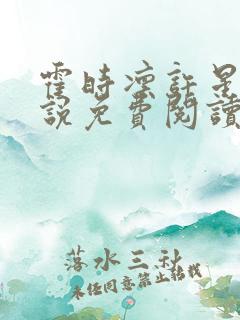 霍時凜許星
說免費閱讀
落水三秋
未经同意禁止转载